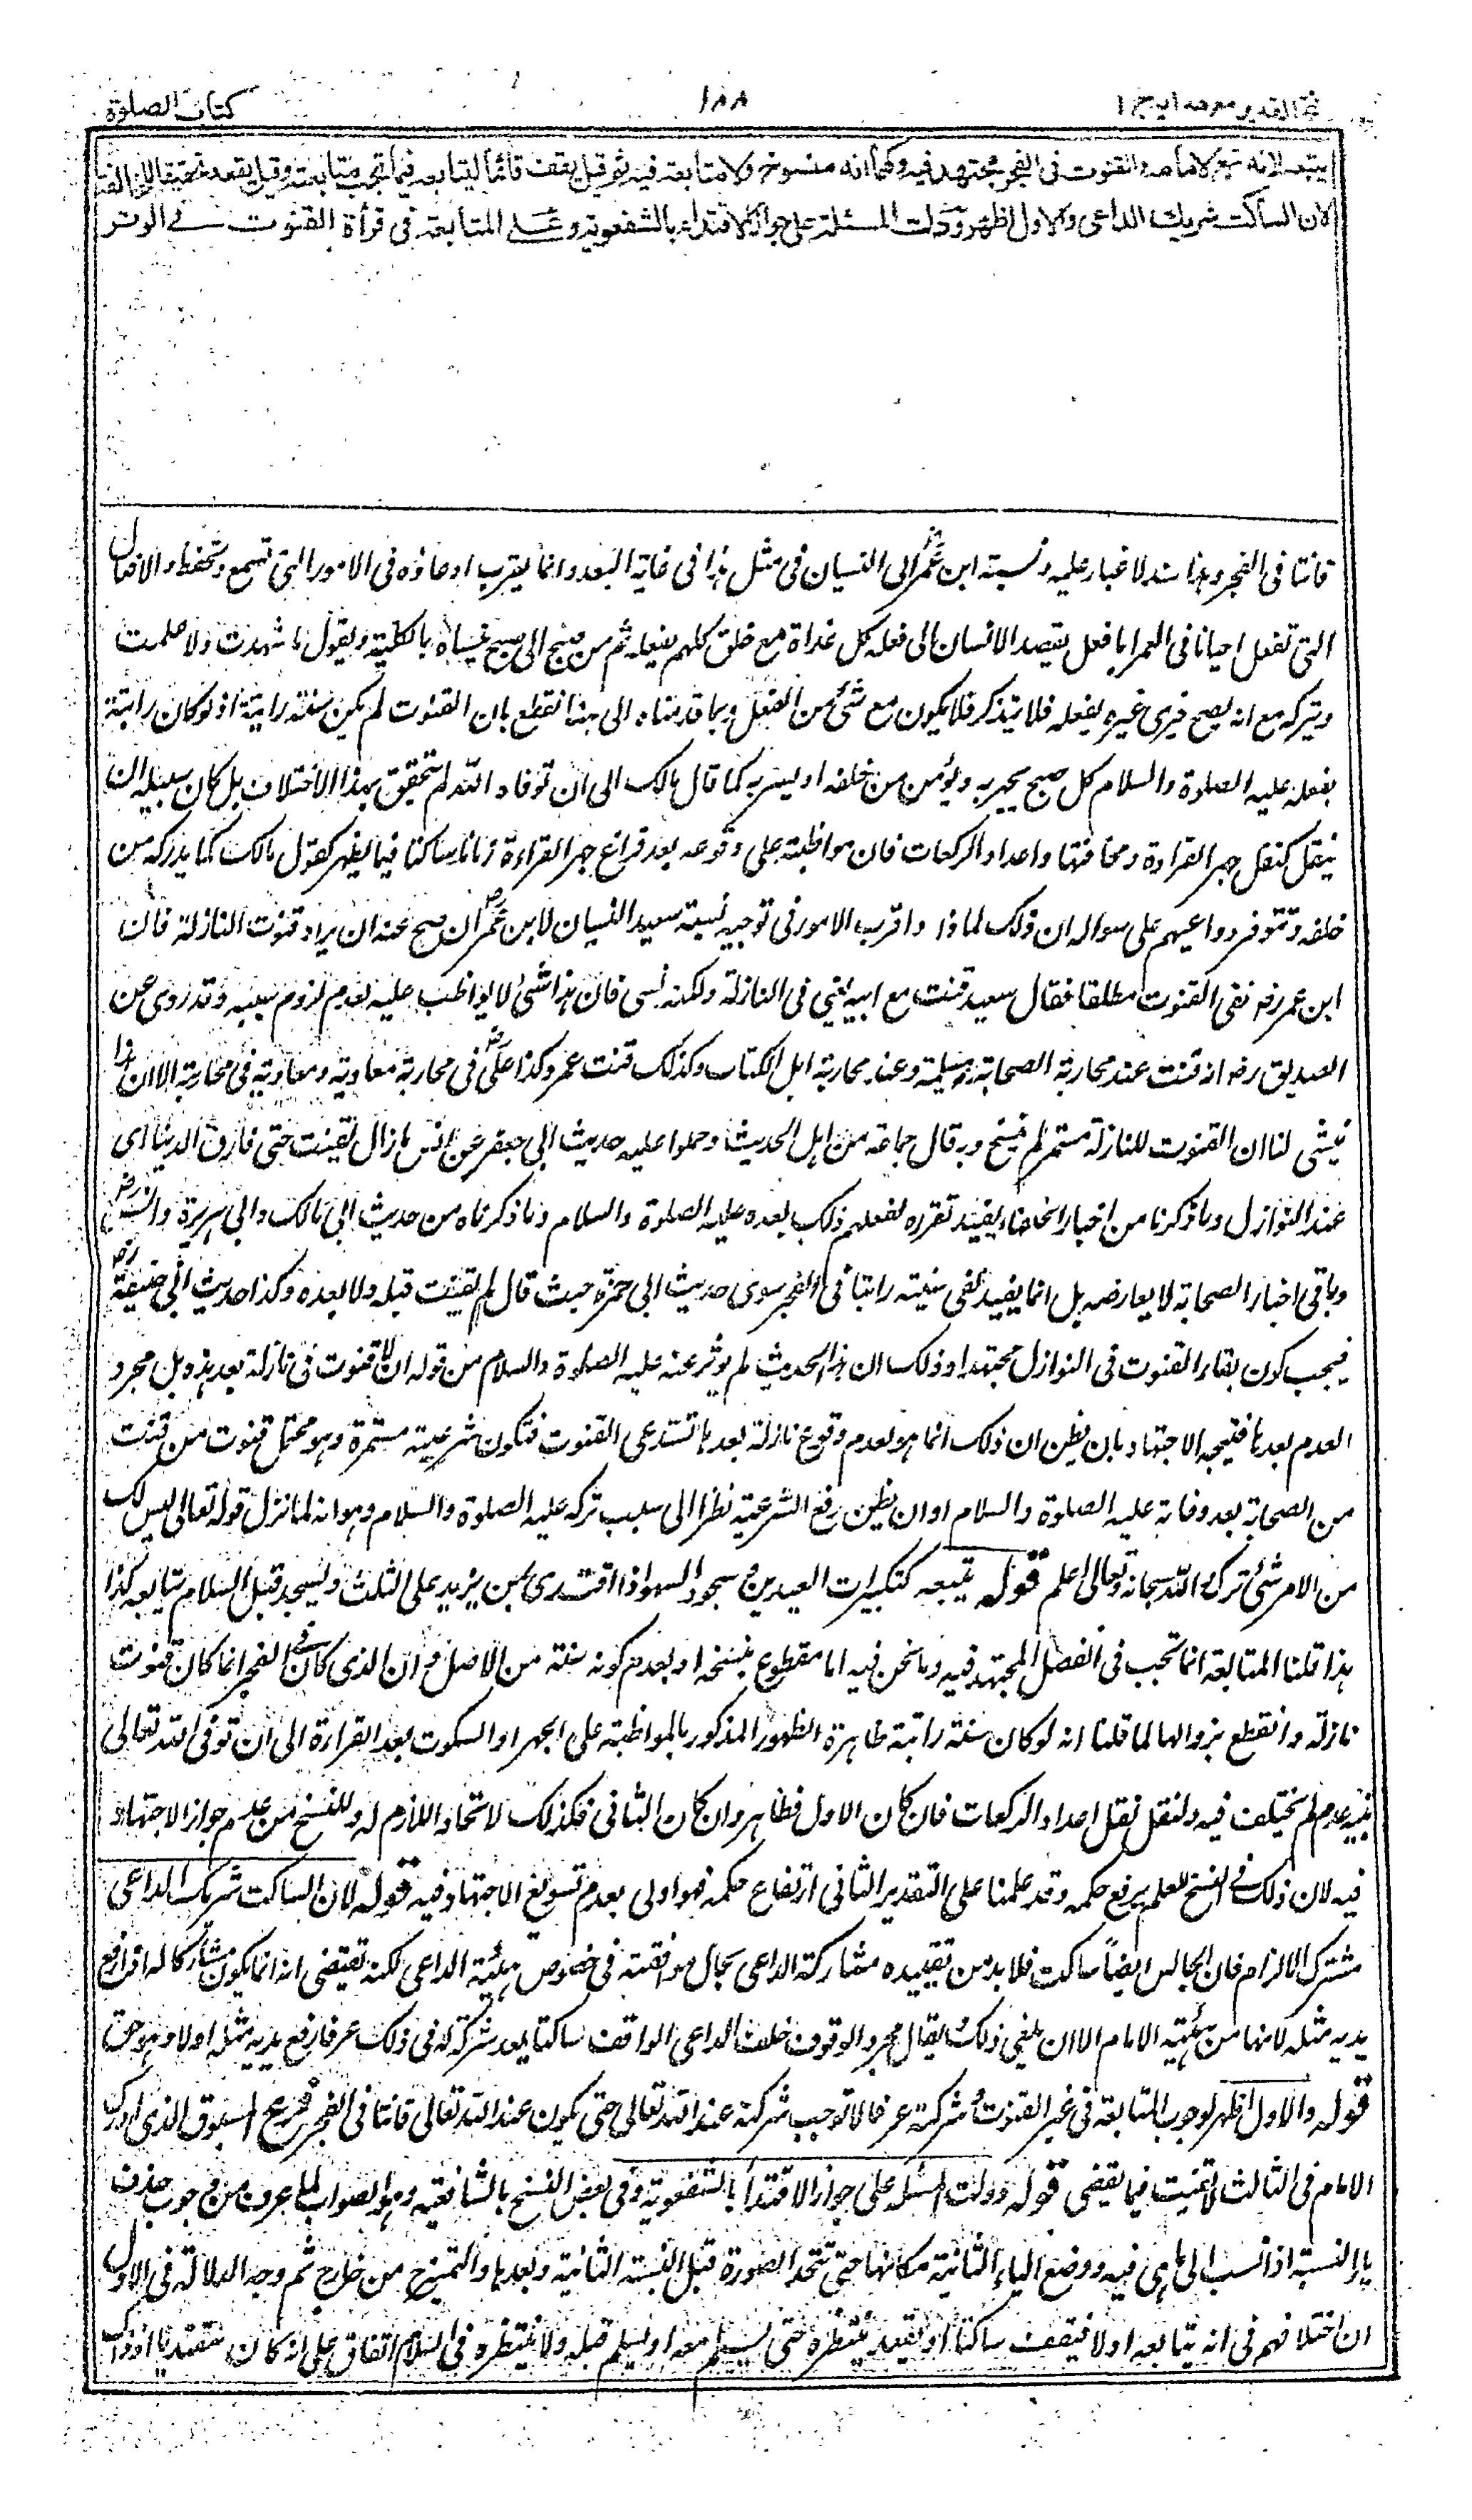 فتح القدير مع هدايه ج ١
١٨٨
كتاب الصلوة
يتبعه لانه تبع لامامه والقنوت فى الفجر مجتهد فيه ولهما انه منسوخ ولا متابعة فيه ثم قيل يقف قائما ليتابعه فيما تجب متابعته وقيل يقعد تحقيقا للمخالفة
لان الساكت شريك الداعى والاول اظهر ودلت المسئلة على جواز الاقتداء بالشفعوية وعلى المتابعة فى قرأة القنوت فے الوتر
قانتا فى الفجر وهذا سند لا غبار عليه ونسبة ابن عمر الى النسيان فى مثل هذا فى غاية البعد وانما يقرب ادعاؤه فى الامور التى تسمع وتحفظ والافعال
التى تفعل احيانا فى العمر اما فعل يقصد الانسان الى فعله كل غداة مع خلق كلهم يفعله ثم من صبح الى صبح ينساه بالكلية ويقول ما شهدت ولا علمت
ويتركه مع انه يصبح فيرى غيره يفعله فلا يتذكر فلا يكون مع شئ من العقل وبما قدمناه الى هنا انقطع بان القنوت لم يكن سنة راتبة اذ لو كان راتبة
يفعله عليه الصلوة والسلام كل صبح يجهر به ويؤمن من خلفه او يسر به كما قال مالك الى ان توفاه الله لم يتحقق بهذا الاختلاف بل كان سبيله ان
ينقل كنقل جهر القراءة ومخافتها واعداد الركعات فان مواظبته على وقوعه بعد فراغ جهر القراءة زمانا ساكتا فيما يظهر كقول مالك مما يدركه من
خلفه وتتوفر دواعيهم على سواله ان ذلك لماذا واقرب الامور فى توجيه نسبة سعيد النسيان لابن عمر ان صح عنه ان يراد قنوت النازلة فان
ابن عمر رض نفى القنوت مطلقا فقال سعيد قنت مع ابيه يعنى فى النازلة ولكنه نسى فان هذا شئ لا يواظب عليه لعدم لزوم سببه وقد روى عن
الصديق رض انه قنت عند محاربة الصحابة مسيلمة وعند محاربة اهل الكتاب وكذلك قنت عمر وكذا على فى محاربة معاوية ومعاوية فى محاربته الا ان هذا
ينشى لنا ان القنوت للنازلة مستمر لم ينسخ وبه قال جماعة من اهل الحديث وحملوا عليه حديث ابى جعفر عن انس ما زال يقنت حتى فارق الدنيا اى
عند النوازل وما ذكرنا من اخبار الخلفاء يفيد تقرره لفعلهم ذلك بعده عليه الصلوة والسلام وما ذكرناه من حديث ابى مالك وابى هريرة وانس رض
وباقى اخبار الصحابة لا يعارضه بل انما يفيد نفى سنيته راتبا فى الفجر سوى حديث ابى حمزة حيث قال لم يقنت قبله ولا بعده وكذا حديث ابى حنيفة رض
فيجب كون بقاء القنوت فى النوازل مجتهدا وذلك ان هذا الحديث لم يوثر عنه عليه الصلوة والسلام من قوله ان لا قنوت فى نازلة بعد هذه بل مجرد
العدم بعدها فيتجه الاجتهاد بان يظن ان ذلك انما هو لعدم وقوع نازلة بعدها تستدعى القنوت فتكون شرعيته مستمرة وهو محتمل قنوت من قنت
من الصحابة بعد وفاته عليه الصلوة والسلام او ان يظن رفع الشرعية نظرا الى سبب تركه عليه الصلوة والسلام وهو انه لما نزل قوله تعالى ليس لك
من الامر شئ ترك والله سبحانه وتعالى اعلم قوله يتبعه كتكبيرات العيدين وسجود السهو اذا اقتدى بمن يزيد على الثلث ويسجد قبل السلام يتابعه كذا
هذا قلنا المتابعة انما تجب فى الفصل المجتهد فيه وما نحن فيه اما مقطوع بنسخه او بعدم كونه سنة من الاصل وان الذى كان فے الفجر انما كان قنوت
نازلة وانقطع بزوالها لما قلنا انه لو كان سنة راتبة ظاهرة الظهور المذكور بالمواظبة على الجهر او السكوت بعد القرارة الى ان توفى الله تعالى
نبيه عدم لم يختلف فيه ولنقل نقل اعداد الركعات فان كان الاول فظاهر وان كان الثانى فكذلك لاتحاد اللازم له وللنسخ من عدم جواز الاجتهاد
فيه لان ذلك فے النسخ للعلم برفع حكمه وقد علمنا على التقدير الثانى ارتفاع حكمه فهو اولى بعدم تسويغ الاجتهاد فيه قوله لان الساكت شريك الداعى
مشترك الالزام فان الجالس ايضاً ساكت فلا بد من تقييده مشاركة الداعى بحال موافقته فى خصوص هيئة الداعى لكنه تقتضى انه انما يكون مشاركا له اذا رفع
يديه مثله لانها من هيئته الامام الا ان يلغى ذلك ويقال مجرد الوقوف خلف الداعى الواقف ساكتا يعد شركة له فى ذلك عرفا رفع يديه مثله اولا وهو حق
قوله والاول اظهر لوجوب المتابعة فى غير القنوت وشركة عرفا لا توجب شركته عند الله تعالى حتى يكون عند الله تعالى قانتا فى الفجر فرع المسبوق الذى ادرك
الامام فى الثالث لا يقنت فيما يقضى قوله ودلت المسئله على جواز الاقتدأ بالشفعوية وفى بعض النسخ بالشافعيه وهو الصواب لما عرف من وجوب حذف
ياء النسبة اذا نسب الى ما هى فيه ووضع الياء الثانية مكانها حتى تتحد الصورة قبل النسبة الثانية وبعدها والتمييز من خارج ثم وجه الدلالة فى الاول
ان اختلافهم فى انه يتابعه اولا فيقف ساكتاً او يقعد ينتظره حتى يسلم معه او يسلم قبله ولا ينتظره فى السلام اتفاق على انه كان مقتديا اذ ذاك